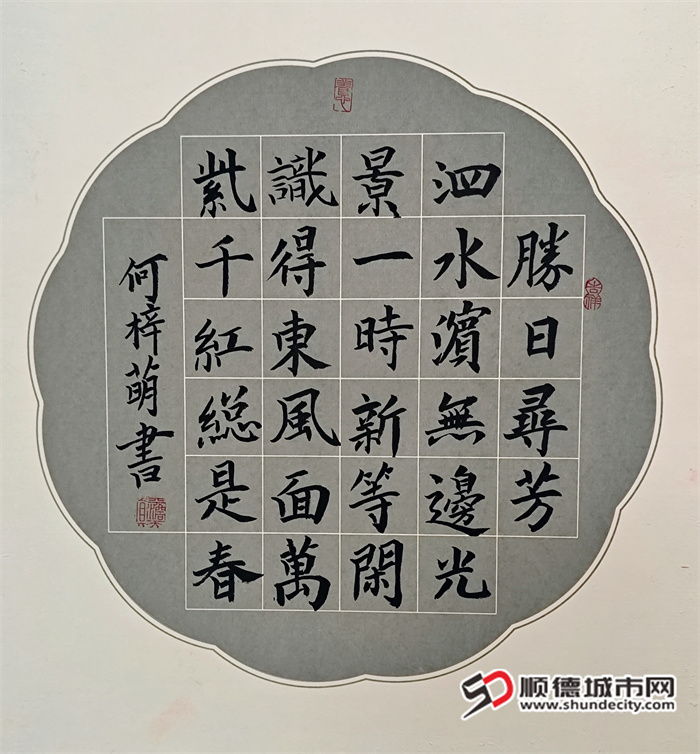 勝日尋芳
泗水濵無邊光
景一時新等閑
識得東風面萬
紫千紅緫是春
何梓萌書
顺德城市网
www.shundecity.com